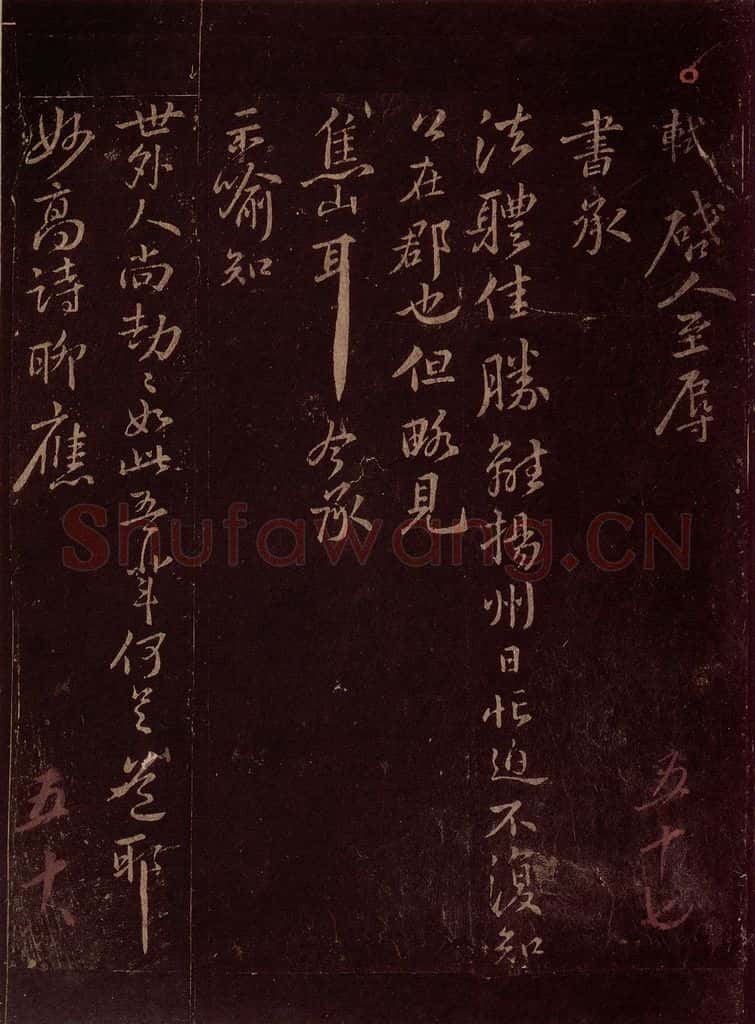 軾啓人至辱
書承
法體佳勝離揚州日忙迫不復知
公在郡也但略見
焦山耳今承
示喻知
世外人尚劫〻如此吾輩何足道耶
妙高詩聊應
五十七
五十八
Shufawang.CN